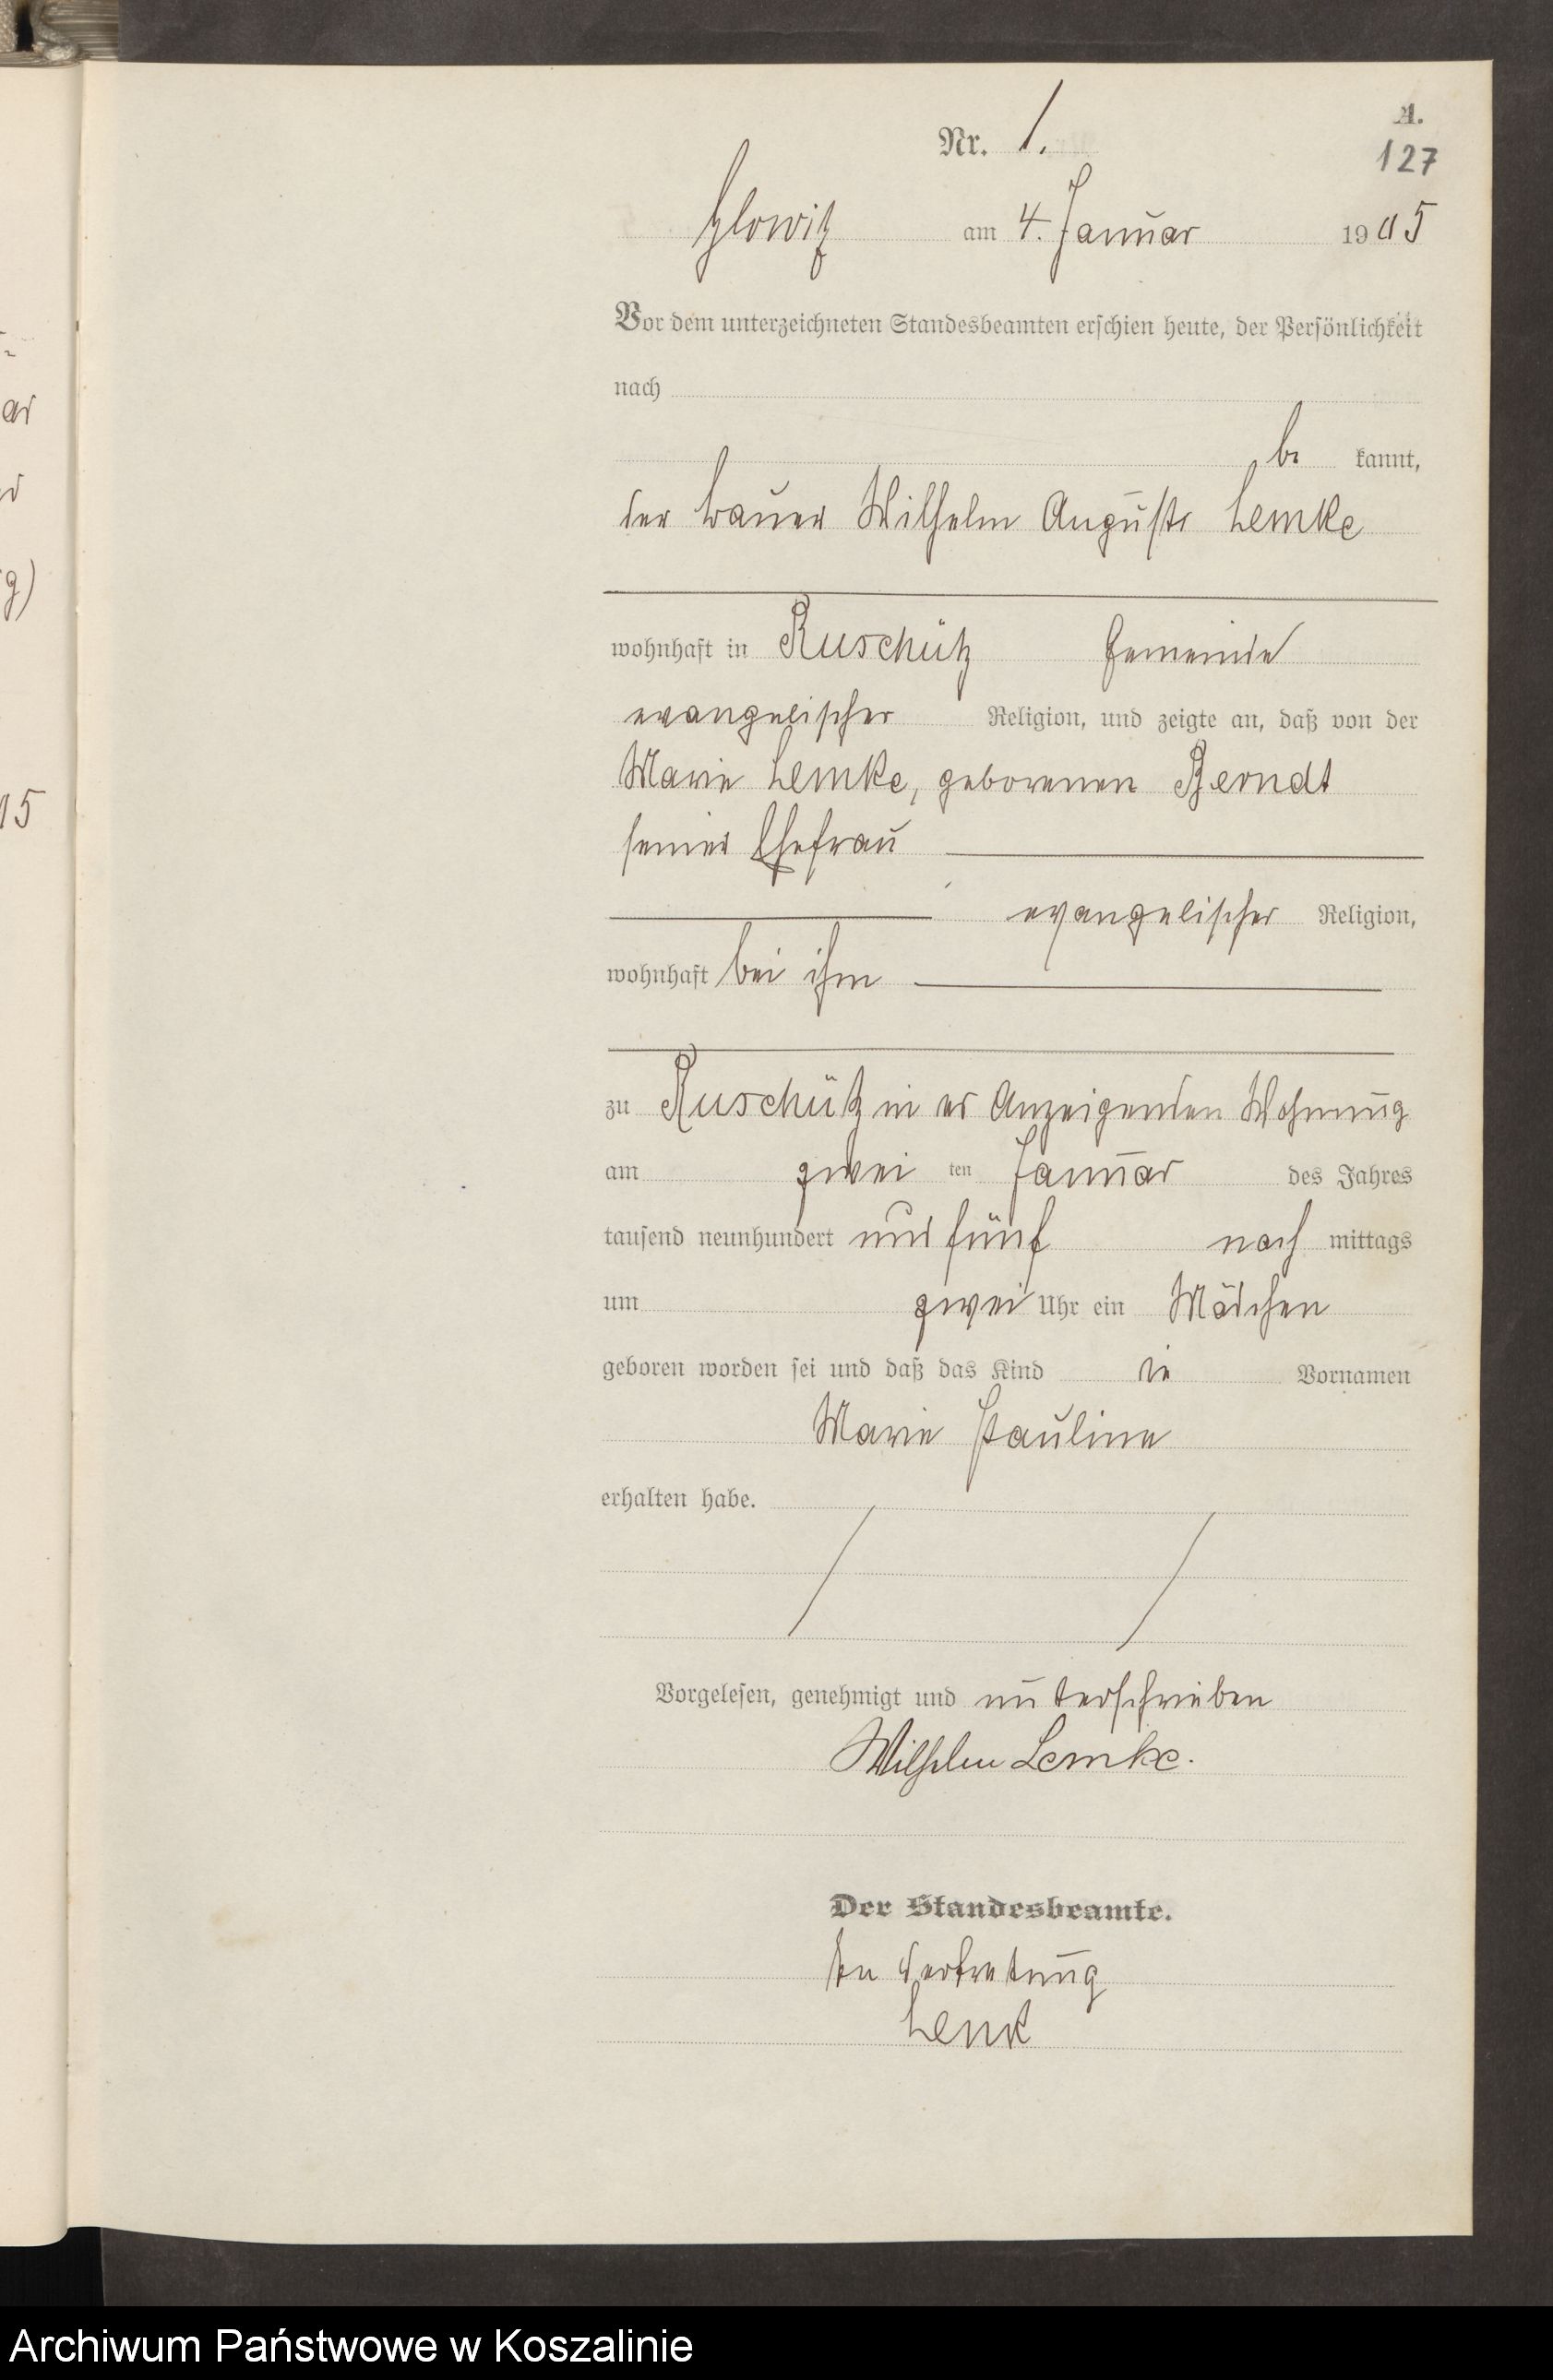 A.
Nr. 1.
127
Glowitz am 4. Januar 1905
Vor dem unterzeichneten Standesbeamten erschien heute, der Persönlichkeit
nach
be kannt,
der Bauer Wilhelm Auguste Lemke
wohnhaft in Ruschütz Gemeinde
evangelischer Religion, und zeigte an, daß von der
Marie Lemke, geborenen Berndt
seiner Ehefrau
evangelischer Religion,
wohnhaft bei ihm
zu Ruschütz in des Anzeigenden Wohnung
am zwei ten Januar des Jahres
tausend neunhundert und fünf nach mittags
um zwei Uhr ein Mädchen
geboren worden sei und daß das Kind die Vornamen
Marie Pauline
erhalten habe.
Vorgelesen, genehmigt und unterschrieben
Wilhelm Lemke.
Der Standesbeamte.
In Vertretung
ar
g)
15
Archiwum Państwowe w Koszalinie